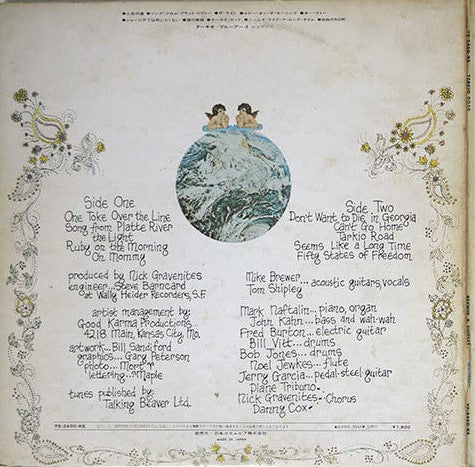 Side One
One Toke Over the Line
Song from Platte River
the Light
Ruby on the Morning
Oh Mommy
produced by Nick Gravenites
engineer... Steve Barncard
at Wally Heider Recorders, S.F.
artist management by:
Good Karma Productions
4218 Main, Kansas City, Mo.
artwork... Bill Sandiford
graphics... Gary Peterson
photo... Mort
lettering... Maple
tunes published by:
Talking Beaver Ltd.
Side Two
Don't Want to Die in Georgia
Can't Go Home
Tarkio Road
Seems Like a Long Time
Fifty States of Freedom
Mike Brewer
Tom Shipley
...acoustic guitars, vocals
Mark Naftalin... piano, organ
John Kahn... bass and wah-wah
Fred Burton... electric guitar
Bill Vitt... drums
Bob Jones... drums
Noel Jewkes... flute
Jerry Garcia... pedal-steel-guitar
Diane Tribuno
Nick Gravenites - Chorus
Danny Cox
YS-2450-KS
¥1,800
MADE IN JAPAN